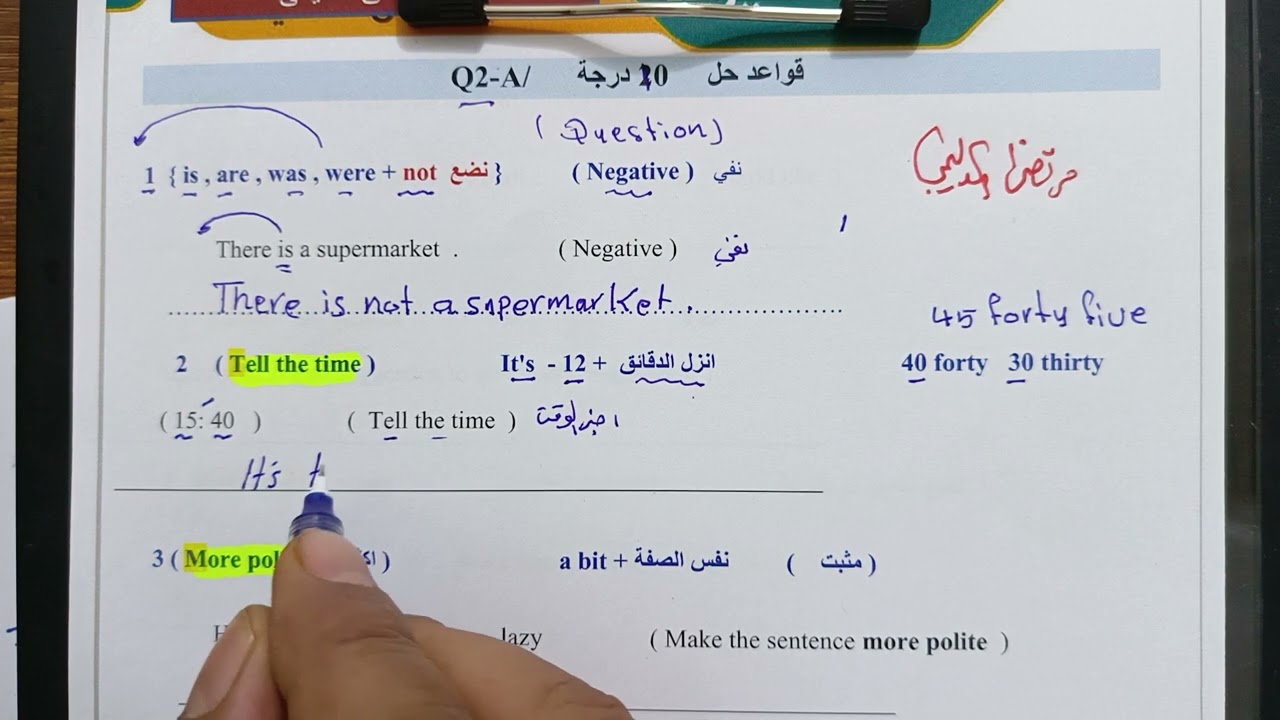 Q2-A/ قواعد حل 10 درجة
( Question )
1 { is , are , was , were + not نضع } ( Negative ) نفي
There is a supermarket . ( Negative ) نفي
There is not a supermarket.
45 forty five
2 ( Tell the time ) It's - 12 + انزل الدقائق 40 forty 30 thirty
( 15: 40 ) ( Tell the time ) اخبر الوقت
It's t
3 ( More pol ) a bit + نفس الصفة ( مثبت )
lazy ( Make the sentence more polite )